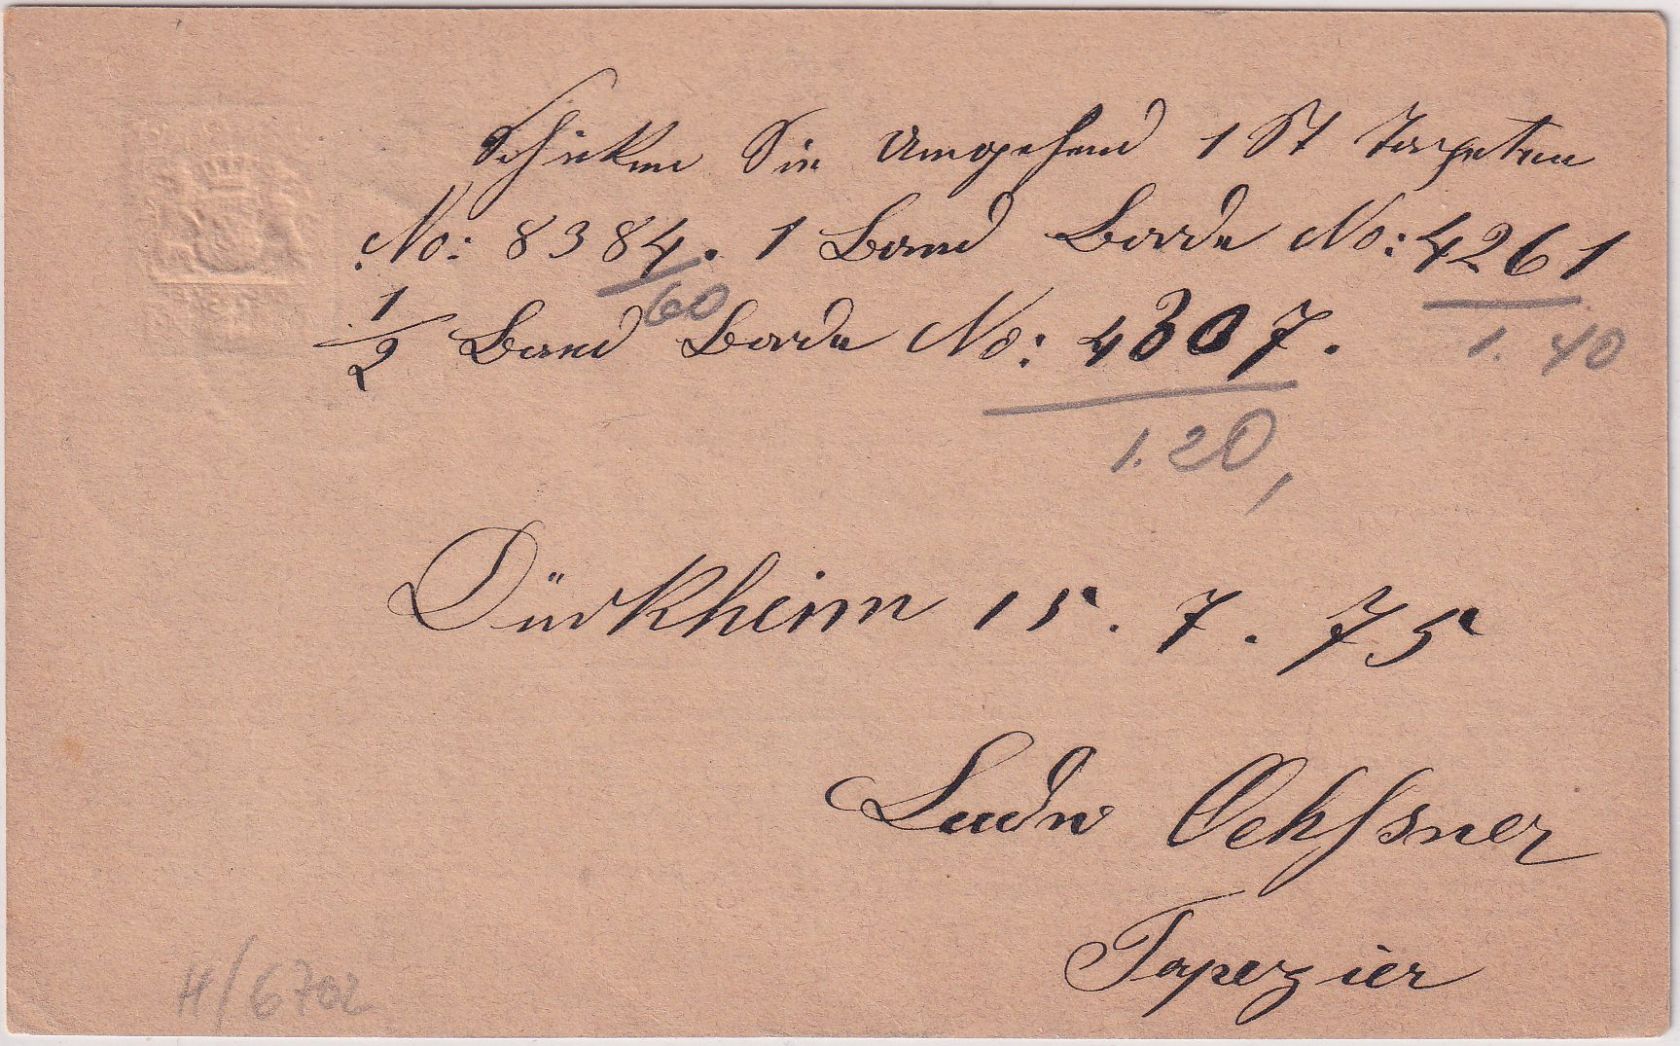 Schicken Sie Umgehend 1 St Tapeten
No: 8384. 1 Band Borde No: 4261
60
1/2 Band Borde No: 4307.
1. 40
1. 20,
Dürkheim 15. 7. 75
Ludw Oechsner
Tapezier
H/6702